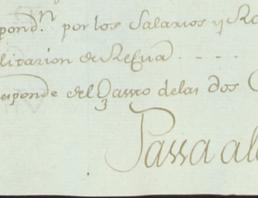 pond.n por los Salarios y Ra
litacion de Resua . . . .
esponde del Gasto de las dos C
Passa al